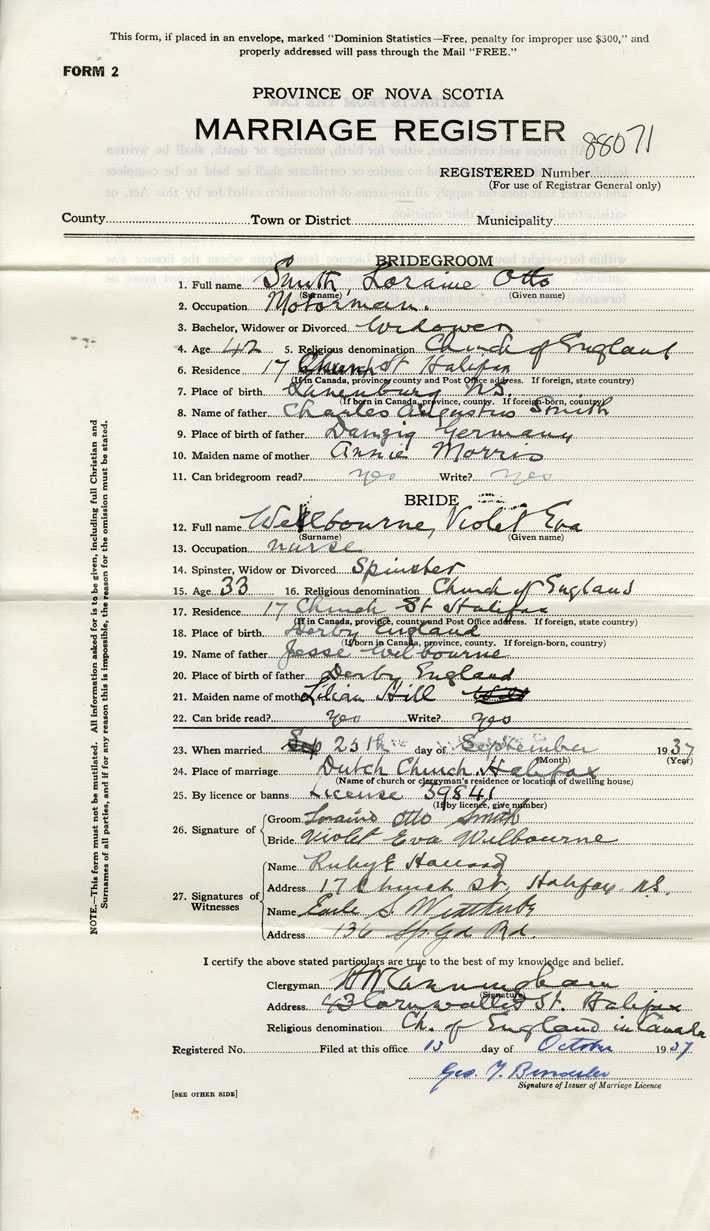 This form, if placed in an envelope, marked "Dominion Statistics—Free, penalty for improper use $300," and
properly addressed will pass through the Mail "FREE."
FORM 2
PROVINCE OF NOVA SCOTIA
MARRIAGE REGISTER 88071
REGISTERED Number
(For use of Registrar General only)
County Town or District Municipality
BRIDEGROOM
1. Full name Smith, Loraine Otto
(Surname) (Given name)
2. Occupation Motorman.
3. Bachelor, Widower or Divorced Widower
4. Age 42 5. Religious denomination Church of England
6. Residence 17 Church St Halifax
(If in Canada, province, county and Post Office address. If foreign, state country)
7. Place of birth Lunenburg N.S.
(If born in Canada, province, county. If foreign-born, country)
8. Name of father Charles Augustus Smith
9. Place of birth of father Danzig Germany
10. Maiden name of mother Annie Morris
11. Can bridegroom read? yes Write? yes
BRIDE
12. Full name Wellbourne, Violet Eva
(Surname) (Given name)
13. Occupation nurse
14. Spinster, Widow or Divorced Spinster
15. Age 33 16. Religious denomination Church of England
17. Residence 17 Church St Halifax
(If in Canada, province, county and Post Office address. If foreign, state country)
18. Place of birth Derby England
(If born in Canada, province, county. If foreign-born, country)
19. Name of father Jesse Wilbourne
20. Place of birth of father Derby England
21. Maiden name of mother Lilian Hill
22. Can bride read? yes Write? yes
23. When married Sep 25th day of September 1937
(Month) (Year)
24. Place of marriage Dutch Church Halifax
(Name of church or clergyman's residence or location of dwelling house)
25. By licence or banns License 39841
(If by licence, give number)
26. Signature of
Groom Loraine Otto Smith
Bride Violet Eva Wilbourne
27. Signatures of Witnesses
Name Ruby E
Address 17 Church St. Halifax N.S.
Name Earle S.
Address 136 Sp. Gd Rd.
I certify the above stated particulars are true to the best of my knowledge and belief.
Clergyman Cunningham
(Signature)
Address 43 Cornwallis St. Halifax
Religious denomination Ch. of England in Canada
Registered No. Filed at this office 13 day of October 1937
Geo. T.
Signature of Issuer of Marriage Licence
[SEE OTHER SIDE]
NOTE.—This form must not be mutilated. All information asked for is to be given, including full Christian and
Surnames of all parties, and if for any reason this is impossible, the reason for the omission must be stated.